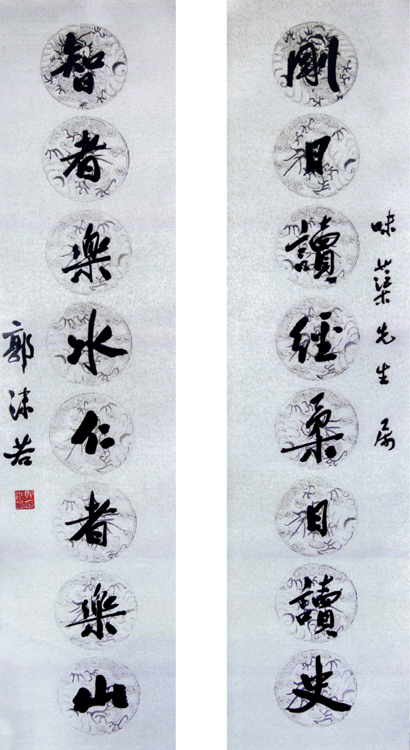 味藥先生属
剛日讀經柔日讀史
智者樂水仁者樂山
郭沫若